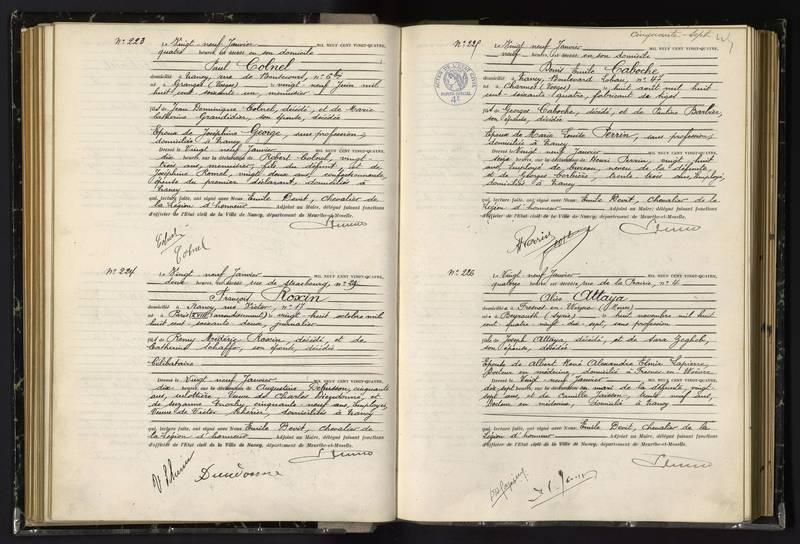 N° 223 Le Vingt neuf Janvier MIL NEUF CENT VINGT-QUATRE,
quatre heures est décédé en son domicile
Paul Colnel
domicilié à Nancy, rue de n° 6
né à Granges (Vosges) le vingt neuf Juin mil
huit cent soixante un, menuisier
fils de Jean Dominique Colnel, décédé, et de Marie
Catherine Grandidier, son épouse, décédée
Epoux de Joséphine George, sans profession,
domiciliée à Nancy
Dressé le Vingt neuf Janvier MIL NEUF CENT VINGT-QUATRE,
dix heures, sur la déclaration de Robert Colnel, vingt
trois ans, menuisier, fils du défunt, et de
Joséphine vingt deux ans,
épouse du premier déclarant, domiciliés à
Nancy
qui, lecture faite, ont signé avec Nous, Emile Devit, Chevalier de
la Légion d'honneur Adjoint au Maire, délégué faisant fonctions
d'officier de l'Etat civil de la Ville de Nancy, département de Meurthe-et-Moselle.
Colnel
Colnel
N° 224 Le Vingt neuf Janvier MIL NEUF CENT VINGT-QUATRE,
deux heures, est décédé rue de Strasbourg, n°
François Roxin
domicilié à Nancy, rue n° 17
né à Paris (XVIII arrondissement) le vingt huit octobre mil
huit cent soixante deux, journalier
fils de Remy Frédéric Roxin, décédé, et de
Catherine son épouse, décédée
Célibataire
Dressé le Vingt neuf Janvier MIL NEUF CENT VINGT-QUATRE,
dix heures, sur la déclaration de Augustine cinquante
ans, Veuve de Charles et
de Suzanne cinquante neuf ans, Employée,
Veuve de Victor domiciliées à Nancy
qui, lecture faite, ont signé avec Nous, Emile Devit, Chevalier de
la Légion d'honneur Adjoint au Maire, délégué faisant fonctions
d'officier de l'Etat civil de la Ville de Nancy, département de Meurthe-et-Moselle.
Cinquante Sept
N° 225 Le Vingt neuf Janvier MIL NEUF CENT VINGT-QUATRE,
neuf heures est décédé en son domicile
Emile Caboche
domicilié à Nancy, Boulevard Lobau, n° 47
né à Charmes (Vosges) le huit août mil huit
cent soixante quatre, fabricant de
fils de Georges Caboche, décédé, et de Pauline Barbier,
son épouse, décédée
Epoux de Marie Perrin, sans profession,
domiciliée à Nancy
Dressé le Vingt neuf Janvier MIL NEUF CENT VINGT-QUATRE,
seize heures, sur la déclaration de Henri Perrin, vingt huit
ans, employé de bureau, neveu de la défunte,
et de Georges trente trois ans, Employé,
domiciliés à Nancy
qui, lecture faite, ont signé avec Nous, Emile Devit, Chevalier de la
Légion d'honneur Adjoint au Maire, délégué faisant fonctions
d'officier de l'Etat civil de la Ville de Nancy, département de Meurthe-et-Moselle.
Perrin
N° 226 Le Vingt neuf Janvier MIL NEUF CENT VINGT-QUATRE,
quatorze heures est décédée rue de la Prairie, n° 4
Alice Attaya
domiciliée à Fresnes en Woëvre (Meuse)
née à Beyrouth (Syrie) le huit novembre mil huit
cent quatre vingt dix sept, sans profession
fille de Joseph Attaya, décédé, et de Sara Zogheb,
son épouse, décédée
Epouse de Albert René Alexandre Lapierre,
Docteur en médecine, domicilié à Fresnes en Woëvre
Dressé le Vingt neuf Janvier MIL NEUF CENT VINGT-QUATRE,
dix sept heures, sur la déclaration du mari de la défunte, vingt
sept ans, et de Camille trente neuf ans,
Docteur en médecine, domicilié à Nancy
qui, lecture faite, ont signé avec Nous, Emile Devit, Chevalier de la
Légion d'honneur Adjoint au Maire, délégué faisant fonctions
d'officier de l'Etat civil de la Ville de Nancy, département de Meurthe-et-Moselle.